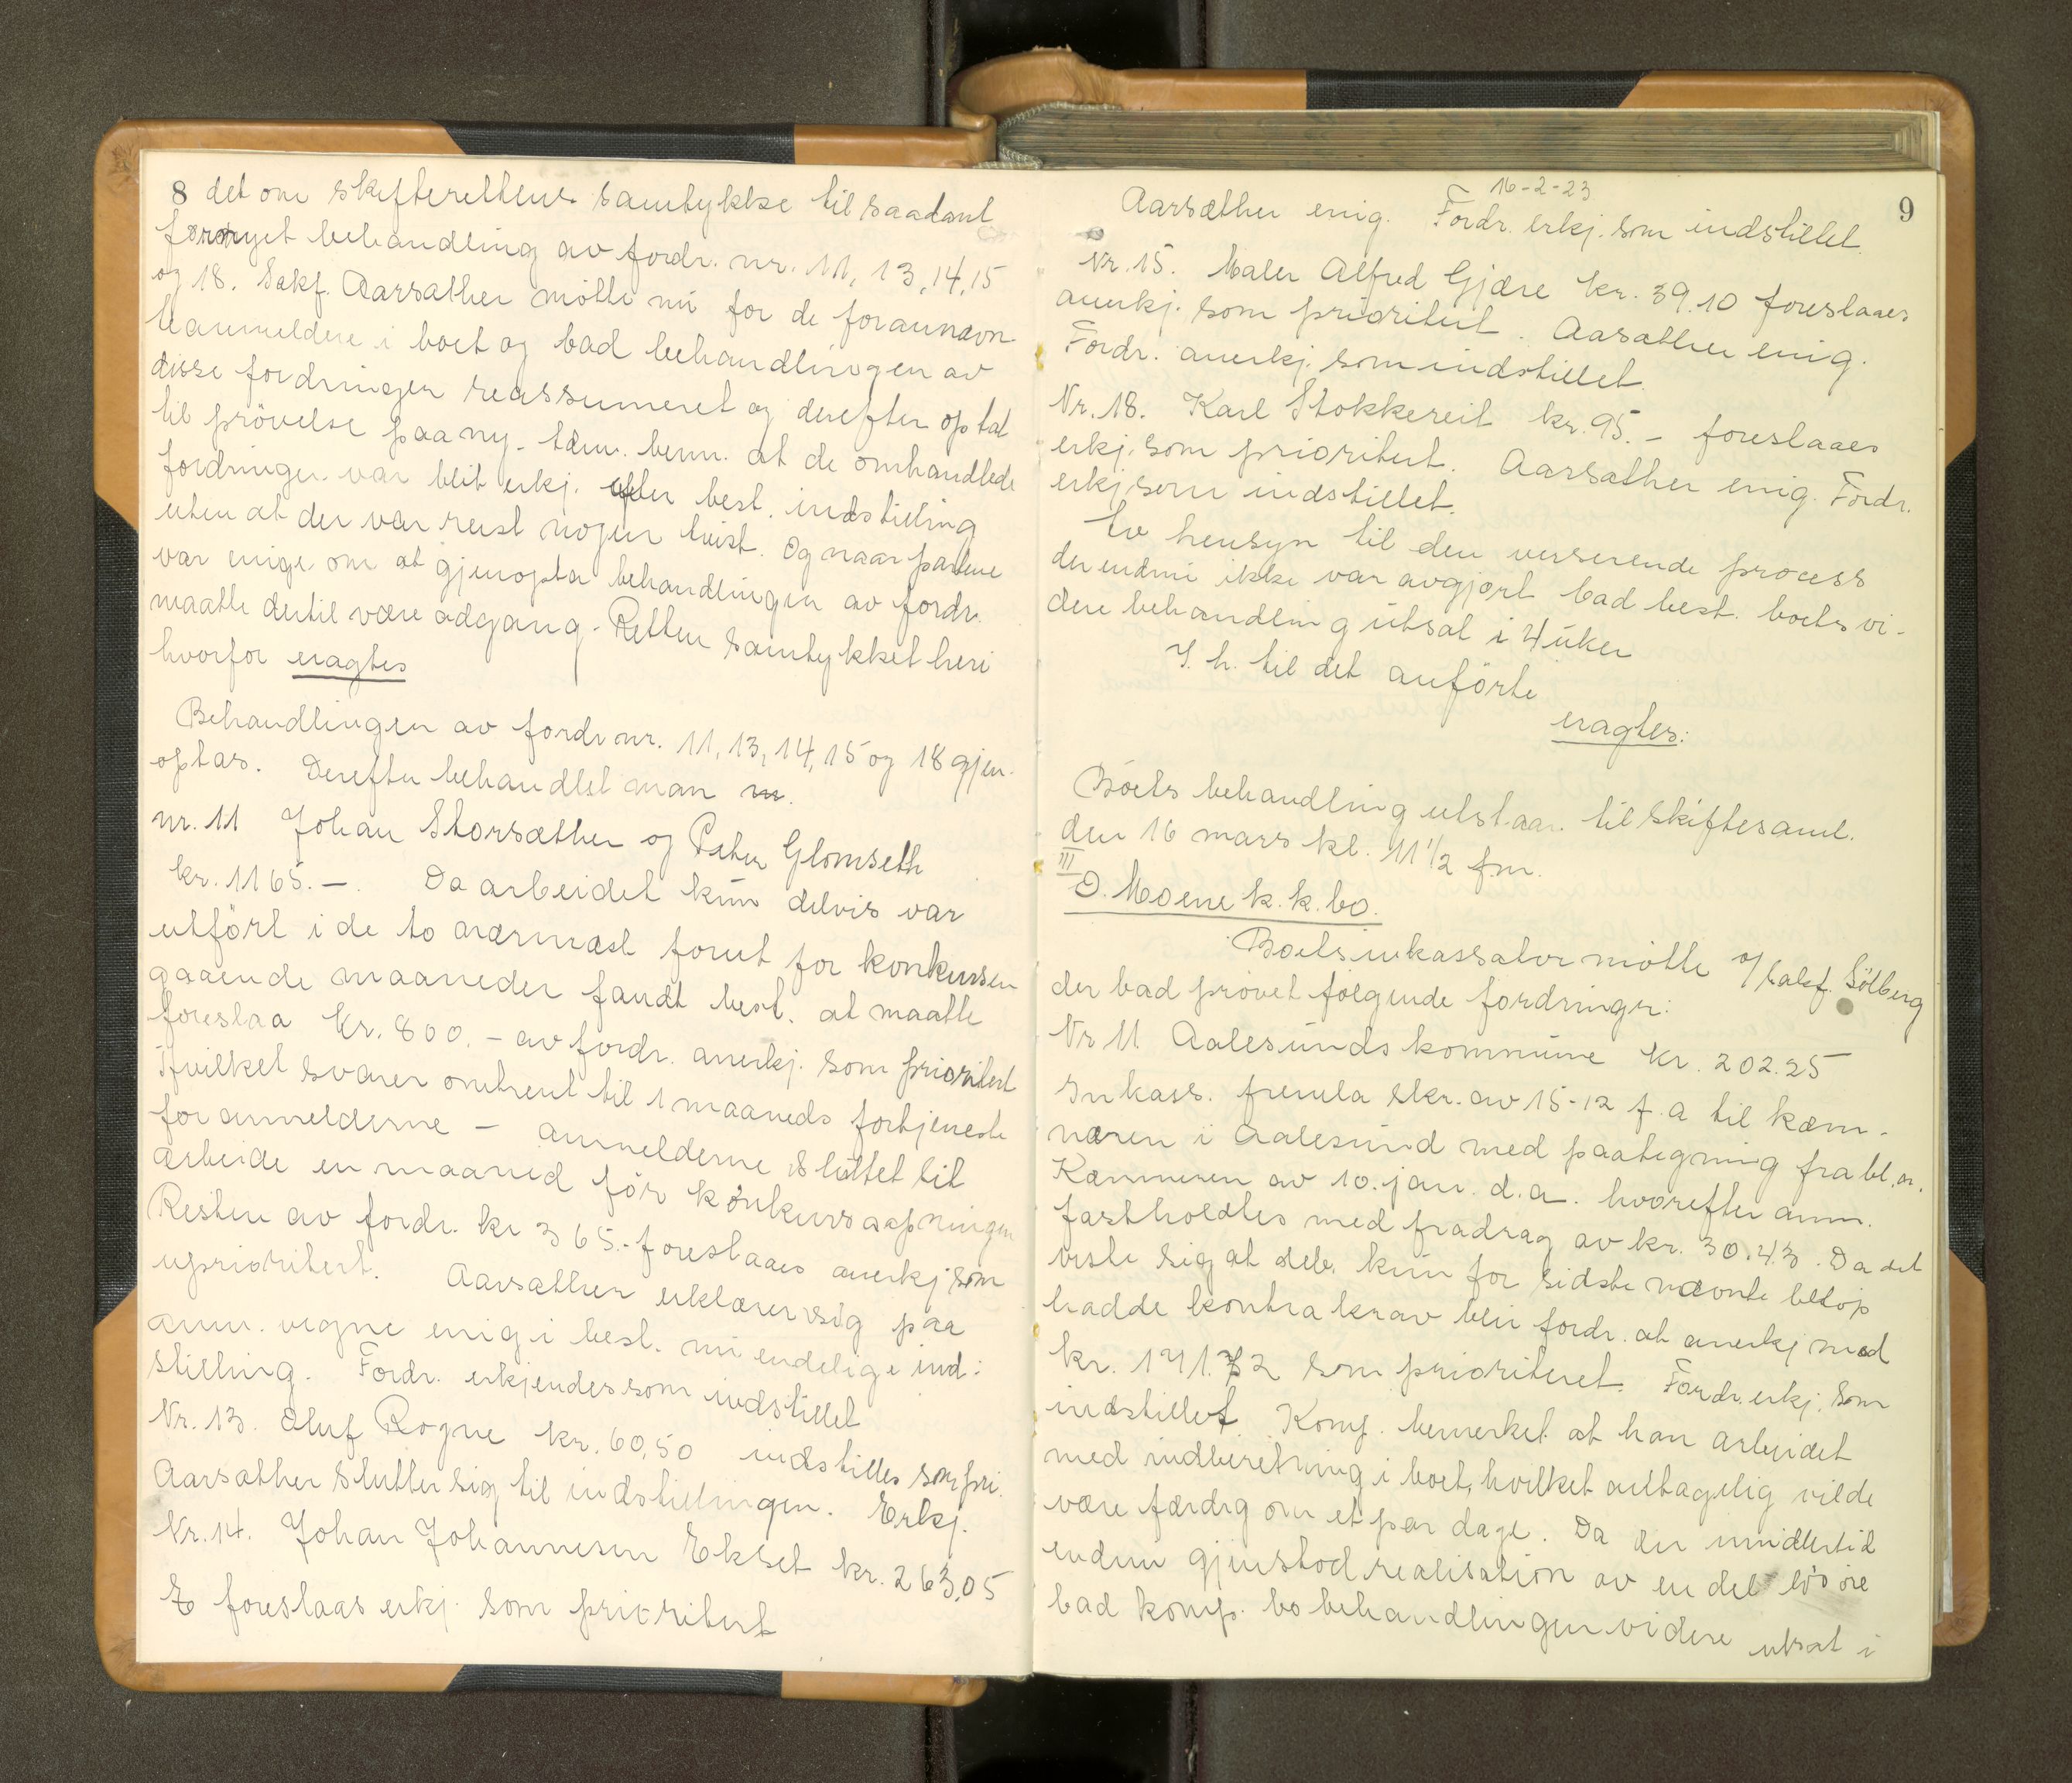 8
det om skifterettens samtykke til saadant
fornyet behandling av fordr. nr. 11, 13, 14, 15
og 18. Sakf. Aarsæther mötte nu for de forannævn
te anmeldere i boet og bad behandlingen av
disse fordringer reassumeret og derefter optat
til prövelse paany. bem. at de omhandlede
fordringer var blit erkj. efter best. indstilling
uten at der var reist nogen tvist. Og naar partene
var enige om at gjenopta behandlingen av fordr.
maatte dertil være adgang. Retten samtykket heri
hvorfor eragtes
Behandlingen av fordr nr. 11, 13, 14, 15 og 18 gjen-
optas. Derefter behandlet man
nr. 11 Johan Storsæther og Peter Glomseth
kr. 1165.-. Da arbeidet kun delvis var
utfört i de to nærmæst forut for konkursen
gaaende maaneder fandt best. at maatte
foreslaa kr. 800.- av fordr. anerkj. som prioritert
Hvilket svarer omtrent til 1 maaneds fortjeneste
for anmelderne - anmelderne sluttet sit
arbeide en maaned för konkursaapningen
Resten av fordr. kr 365.- foreslaaes anerkj som
uprioritert. Aarsæther erklærer sig paa
anm. vegne enig i best. nu endelige ind-
stilling. Fordr. erkjendes som indstillet
Nr. 13. Oluf Rogne kr. 60,50 indstilles som pri.
Aarsæther slutter sig til indstillingen. Erkj.
Nr. 14. Johan Johannesen Ekset kr. 263,05
foreslaas erkj. som prioritert
16-2-23
9
Aarsæther enig. Fordr. erkj. som indstillet.
Nr. 15. Maler Alfred Gjære kr. 39.10 foreslaaes
anerkj. som prioritert. Aarsæther enig.
Fordr. anerkj. som indstillet.
Nr. 18. Karl Stokkereit kr. 95.- foreslaaes
erkj. som prioritert. Aarsæther enig. Fordr.
erkj. som indstillet.
Av hensyn til den verserende process
der endnu ikke var avgjort bad best. boets vi-
dere behandling utsat i 4 uker
I. h. til det anförte
eragtes:
Boets behandling utstaar til skiftesaml.
den 16 mars kl. 11 1/2 fm.
III
O. Moene k. k. bo.
Boets inkassator mötte v/sakf. Sölberg
der bad prövet fölgende fordringer:
Nr 11 Aalesunds kommune kr. 202.25
Inkass. fremla skr. av 15-12 f. a til kæm-
neren i Aalesund med paategning fra bl. a.
Kæmneren av 10. jan. d. a. hvorefter anm.
fastholdtes med fradrag av kr. 30.43. Da det
viste sig at deb. kun for sidste nævnte belöp
hadde kontrakrav blir fordr. at anerkj med
kr. 171.82 som prioriteret. Fordr. erkj. som
indstillet. Komp. bemerket at han arbeidet
med indberetning i boet, hvilket antagelig vilde
være færdig om et par dage. Da der imidlertid
endnu gjenstod realisation av en del lösöre
bad komp. bobehandlingen videre utsat i